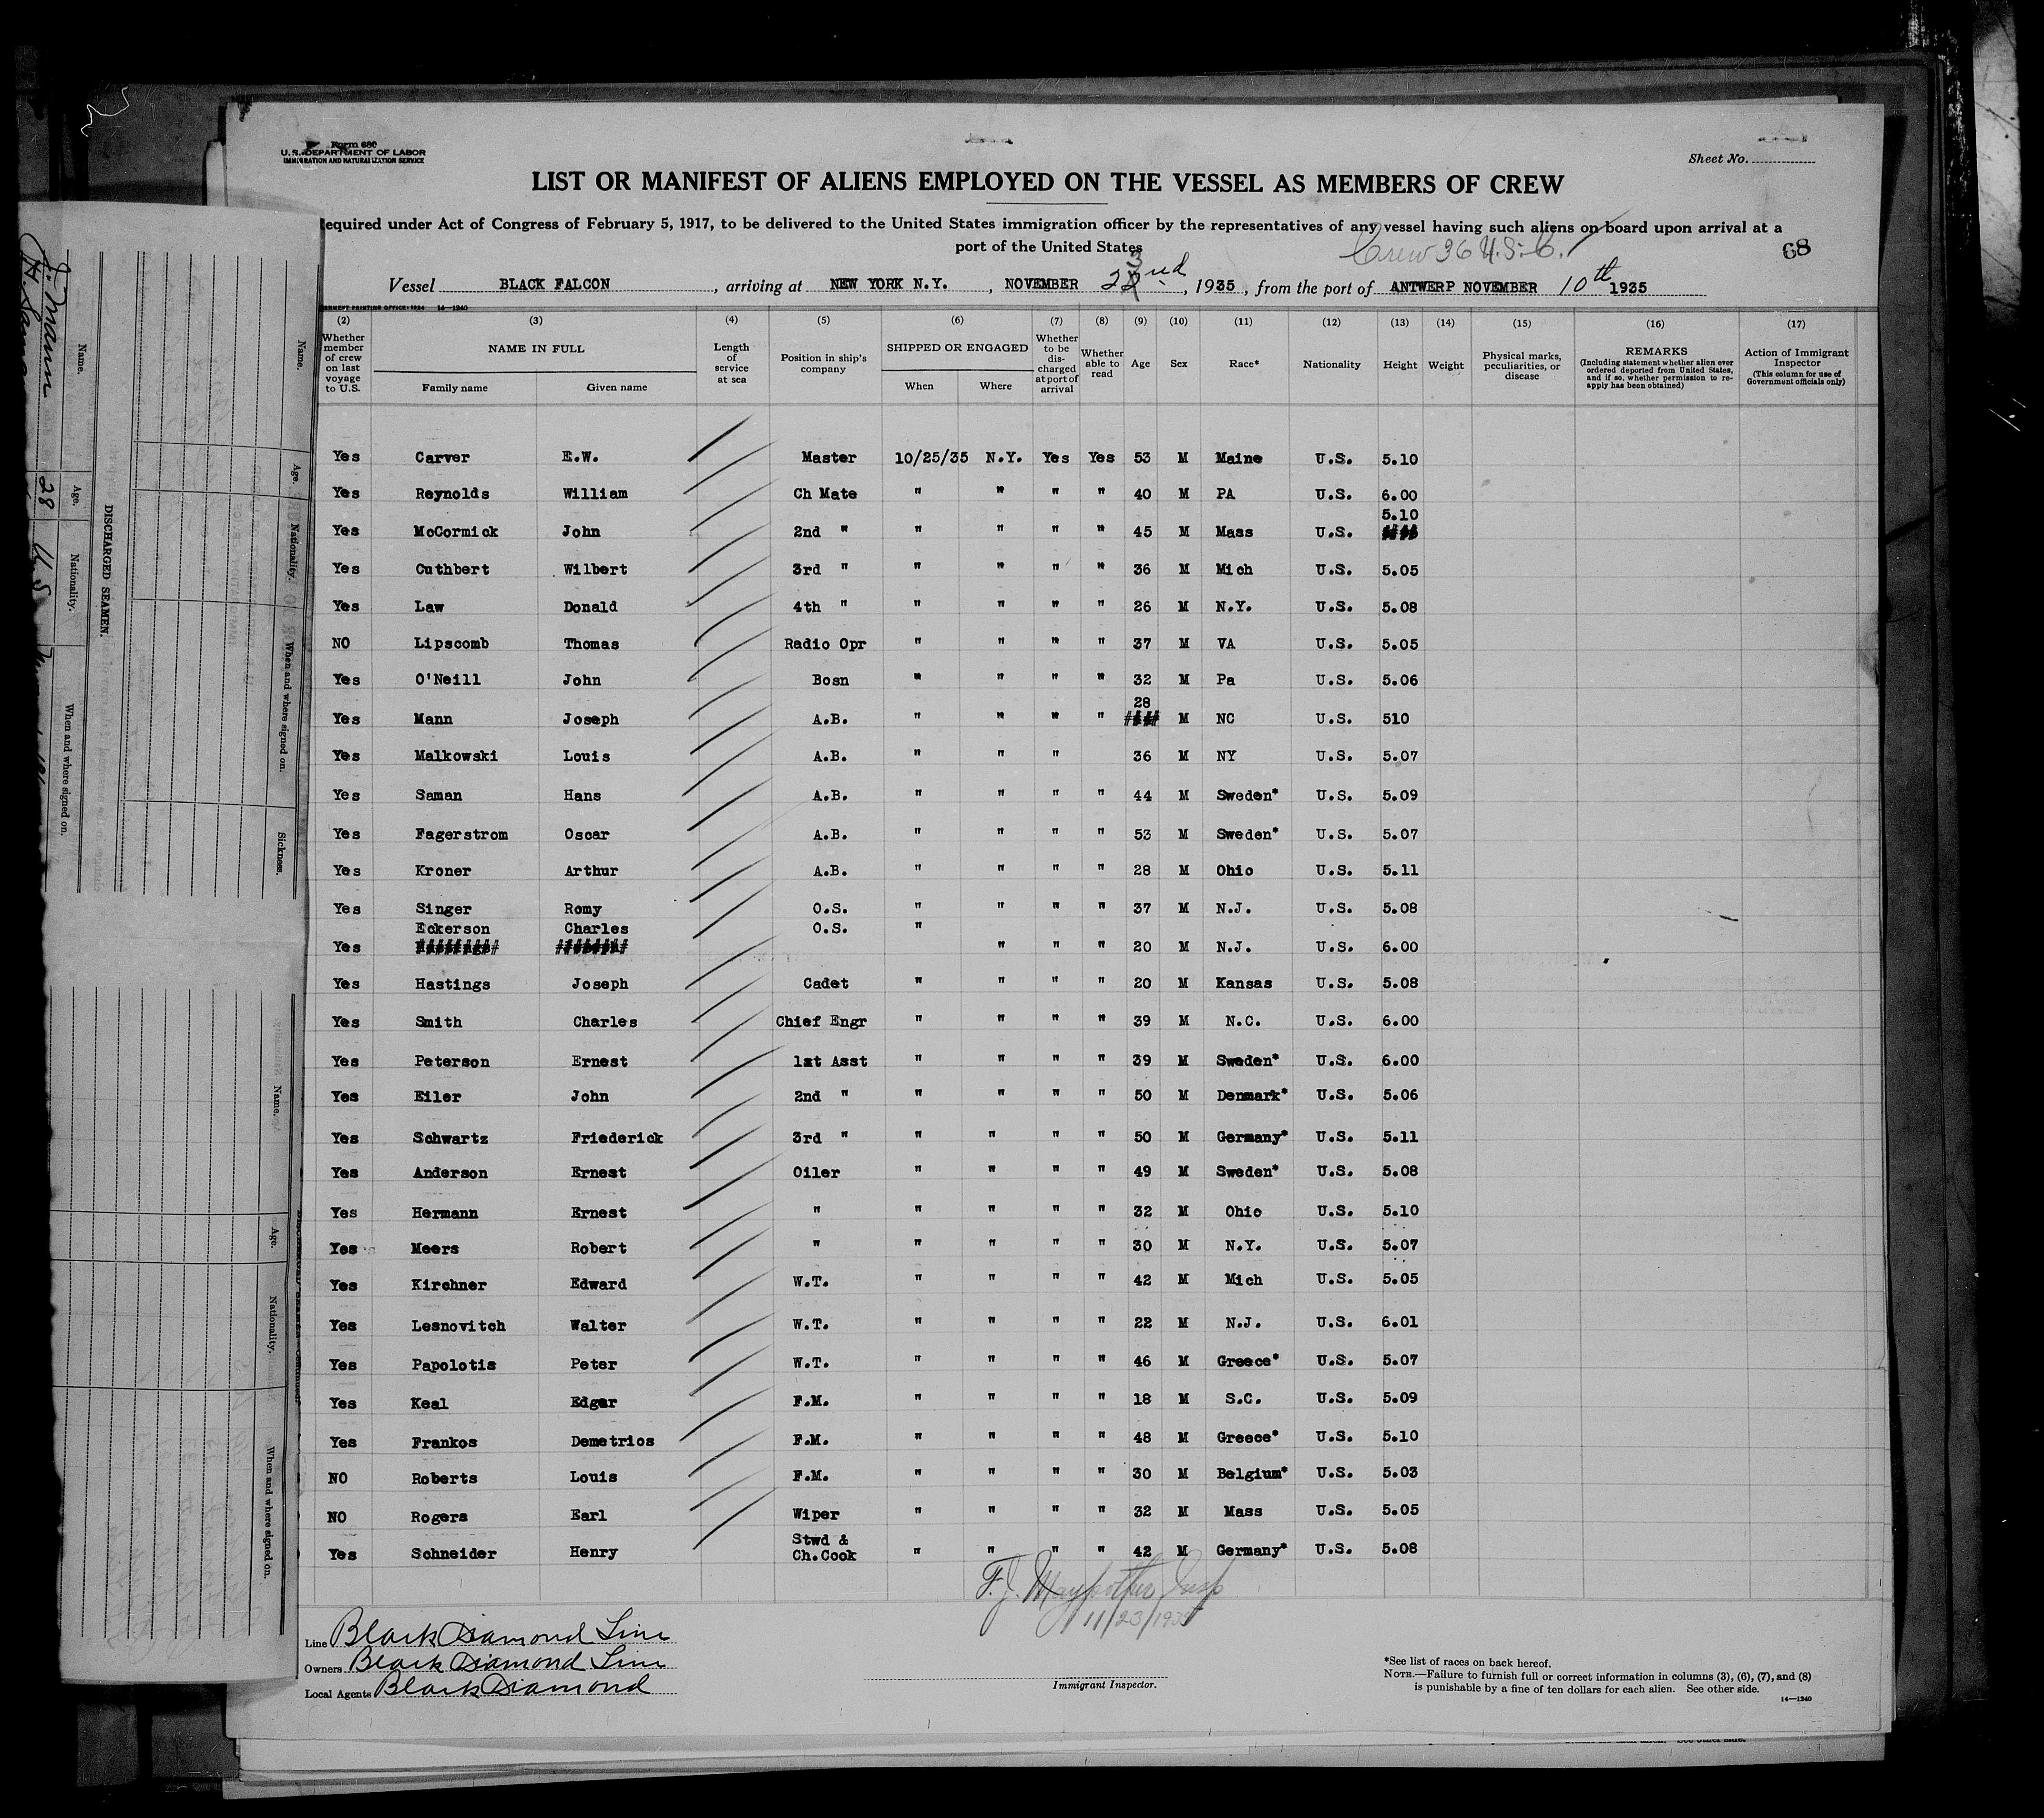 Form 680
U. S. DEPARTMENT OF LABOR
IMMIGRATION AND NATURALIZATION SERVICE
Sheet No.
LIST OR MANIFEST OF ALIENS EMPLOYED ON THE VESSEL AS MEMBERS OF CREW
equired under Act of Congress of February 5, 1917, to be delivered to the United States immigration officer by the representatives of any vessel having such aliens on board upon arrival at a
port of the United States
Crew 36 U.S.C.
68
Vessel BLACK FALCON , arriving at NEW YORK N.Y. , NOVEMBER 23nd , 1935 , from the port of ANTWERP NOVEMBER 10th 1935
14—1240
(2) (3) (4) (5) (6) (7) (8) (9) (10) (11) (12) (13) (14) (15) (16) (17)
Whether member of crew on last voyage to U.S. NAME IN FULL Family name Given name Length of service at sea Position in ship's company SHIPPED OR ENGAGED When Where Whether to be discharged at port of arrival Whether able to read Age Sex Race* Nationality Height Weight Physical marks, peculiarities, or disease REMARKS (Including statement whether alien ever ordered deported from United States, and if so, whether permission to reapply has been obtained) Action of Immigrant Inspector (This column for use of Government officials only)
Yes Carver E.W. Master 10/25/35 N.Y. Yes Yes 53 M Maine U.S. 5.10
Yes Reynolds William Ch Mate " " " " 40 M PA U.S. 6.00
5.10
Yes McCormick John 2nd " " " " " 45 M Mass U.S.
Yes Cuthbert Wilbert 3rd " " " " " 36 M Mich U.S. 5.05
Yes Law Donald 4th " " " " " 26 M N.Y. U.S. 5.08
NO Lipscomb Thomas Radio Opr " " " " 37 M VA U.S. 5.05
Yes O'Neill John Bosn " " " " 32 M Pa U.S. 5.06
28
Yes Mann Joseph A.B. " " " " M NC U.S. 510
Yes Malkowski Louis A.B. " " " 36 M NY U.S. 5.07
Yes Saman Hans A.B. " " " " 44 M Sweden* U.S. 5.09
Yes Fagerstrom Oscar A.B. " " " " 53 M Sweden* U.S. 5.07
Yes Kroner Arthur A.B. " " " " 28 M Ohio U.S. 5.11
Yes Singer Romy O.S. " " " " 37 M N.J. U.S. 5.08
Eckerson Charles O.S. "
Yes " " " 20 M N.J. U.S. 6.00
Yes Hastings Joseph Cadet " " " " 20 M Kansas U.S. 5.08
Yes Smith Charles Chief Engr " " " " 39 M N.C. U.S. 6.00
Yes Peterson Ernest 1st Asst " " " " 39 M Sweden* U.S. 6.00
Yes Eiler John 2nd " " " " " 50 M Denmark* U.S. 5.06
Yes Schwartz Friederick 3rd " " " " " 50 M Germany* U.S. 5.11
Yes Anderson Ernest Oiler " " " " 49 M Sweden* U.S. 5.08
Yes Hermann Ernest " " " " " 32 M Ohio U.S. 5.10
Yes Meers Robert " " " " " 30 M N.Y. U.S. 5.07
Yes Kirchner Edward W.T. " " " " 42 M Mich U.S. 5.05
Yes Lesnovitch Walter W.T. " " " " 22 M N.J. U.S. 6.01
Yes Papolotis Peter W.T. " " " " 46 M Greece* U.S. 5.07
Yes Keal Edgar F.M. " " " " 18 M S.C. U.S. 5.09
Yes Frankos Demetrios F.M. " " " " 48 M Greece* U.S. 5.10
NO Roberts Louis F.M. " " " " 30 M Belgium* U.S. 5.03
NO Rogers Earl Wiper " " " " 32 M Mass U.S. 5.05
Stwd &
Yes Schneider Henry Ch.Cook " " " " 42 M Germany* U.S. 5.08
F. J. Insp
11/23/1935
Line Black Diamond Line
Owners Black Diamond Line
Local Agents Black Diamond
Immigrant Inspector.
*See list of races on back hereof.
NOTE.—Failure to furnish full or correct information in columns (3), (6), (7), and (8)
is punishable by a fine of ten dollars for each alien. See other side.
14—1240
DISCHARGED SEAMEN.
Name. Age. Nationality. When and where signed on.
J. Mann 28 U.S.
Name. Age. Nationality. When and where signed on. Sickness.
Name. Age. Nationality. When and where signed on.